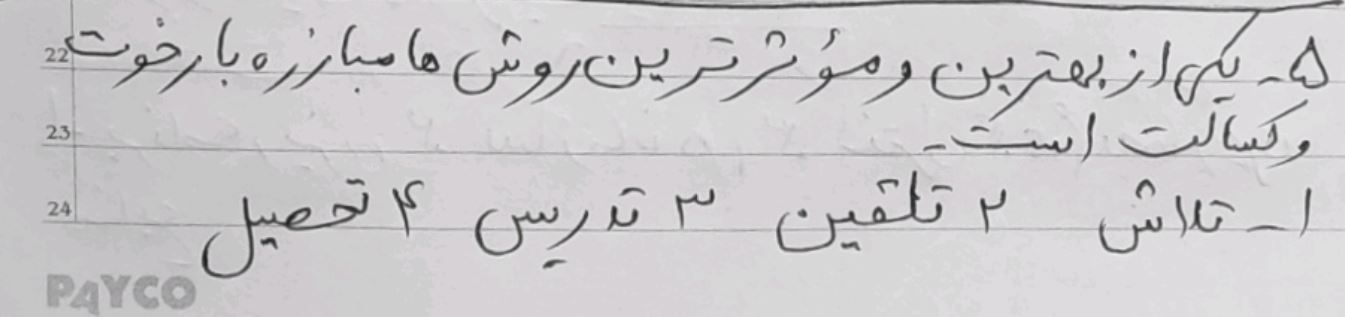 ۵- یکی از بهترین و مؤثرترین روش ها مبارزه با رخوت
و کسالت است.
۱- تلاش ۲ تلقین ۳ تدریس ۴ تحصیل
22
23
24
PAYCO